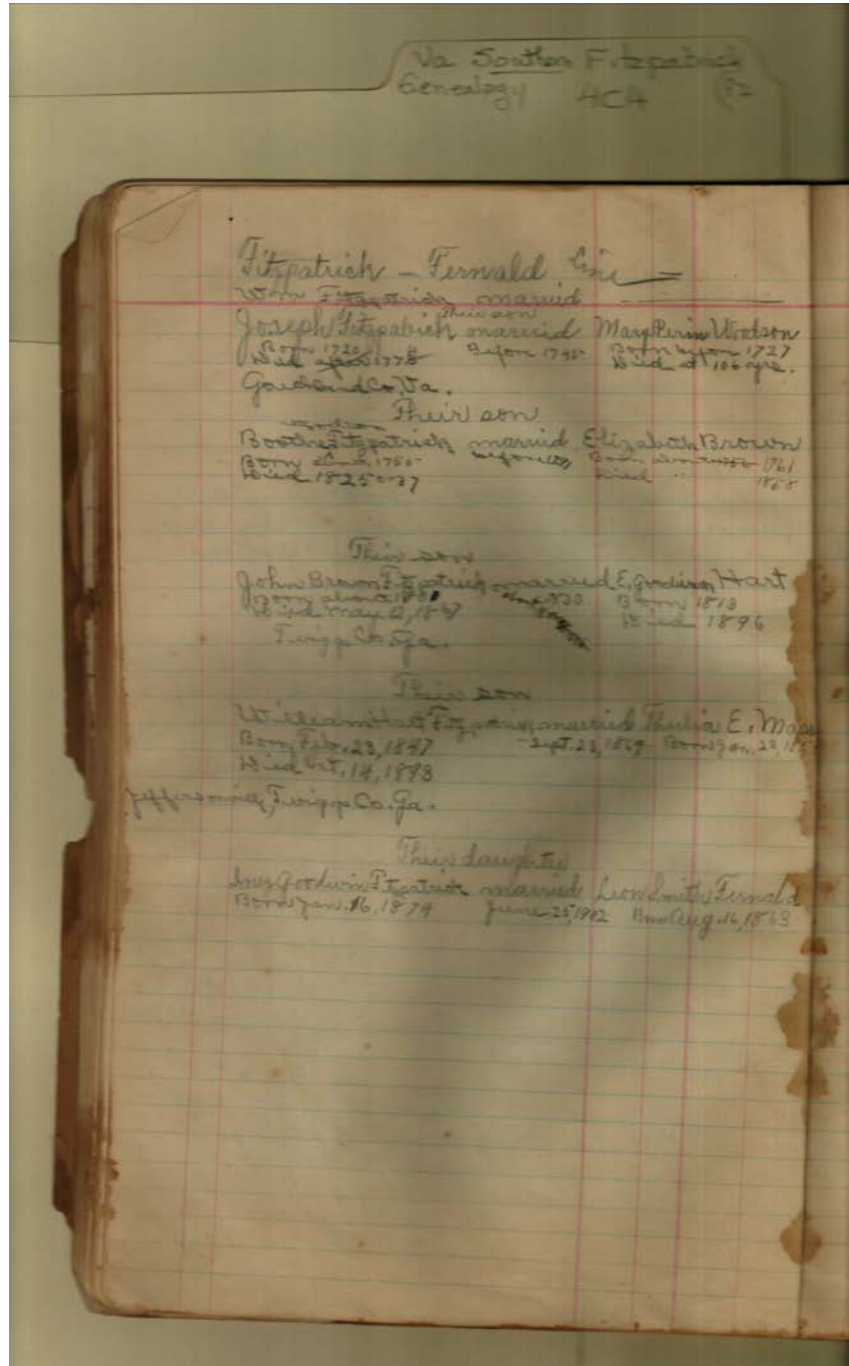 Va Southern Fitzpatrick
Genealogy 4C4 (82
Fitzpatrick – Fernald Line
Wm Fitzpatrick married
Their son
Joseph Fitzpatrick married Mary Perin Woodson
Born 1720 Before 1745 Born before 1727
Died 1778 Died at 106 yrs.
Goochland Co, Va.
Their son
Woodson
Booth Fitzpatrick married Elizabeth Brown
Born about 1755 before 1791 Born about 1761
Died 1825 37 Died 1858
Their son
John Brown Fitzpatrick married E. Goodwin Hart
Born about 1830 Born 1813
Died May 12, 1867 Died 1896
Twiggs Co. Ga.
Their son
William Hart Fitzpatrick married Thulia E.
Born Feb. 23, 1847 Sept. 23, 1869 Born Jan. 22,
Died Oct. 14, 1893
Jeffersonville, Twiggs Co. Ga.
Their daughter
Inez Goodwin Fitzpatrick married Leon Smith Fernald
Born Jan. 16, 1874 June 25, 1902 Born Aug. 16, 1863